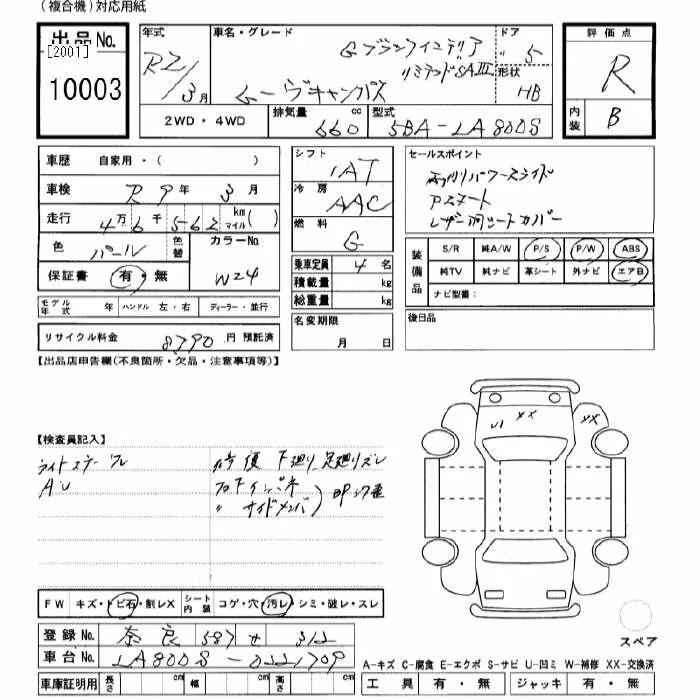 (複合機)対応用紙
出品No. [2001] 10003
年式 R2/3月
車名・グレード Gブラックインテリア リミテッドSAⅢ ムーヴキャンバス
ドア 5
形状 HB
評価点 R
内装 B
2WD・4WD
排気量 660 cc
型式 5BA-LA800S
車歴 自家用・( )
車検 R9年 3月
走行 4万6千562 km マイル( )
色 パール 色替
カラーNo. W24
保証書 有・無
モデル年式 年 ハンドル 左・右 ディーラー・並行
リサイクル料金 8790 円 預託済
シフト IAT
冷房 AAC
燃料 G
乗車定員 4名
積載量 kg
総重量 kg
名変期限 月 日
セールスポイント
両側パワースライド
Pスタート
レザー調シートカバー
装備品 S/R 純A/W P/S P/W ABS
純TV 純ナビ 革シート 外ナビ エアB
ナビ型番:
後日品
【出品店申告欄(不良箇所・欠品・注意事項等)】
【検査員記入】
ライトステーワレ
AU
修復 下廻り足廻りズレ
フロア インパネ
〃 サイドメンバ
U1 XX XX
FW キズ・トビ石・割レX シート内装 コゲ・穴・汚レ・シミ・破レ・スレ
登録No. 奈良 587 せ 312
車台No. LA800S-0221709
スペア
A-キズ C-腐食 E-エクボ S-サビ U-凹ミ W-補修 XX-交換済
車庫証明用 長さ cm 幅 cm 高さ cm
工具 有・無 ジャッキ 有・無